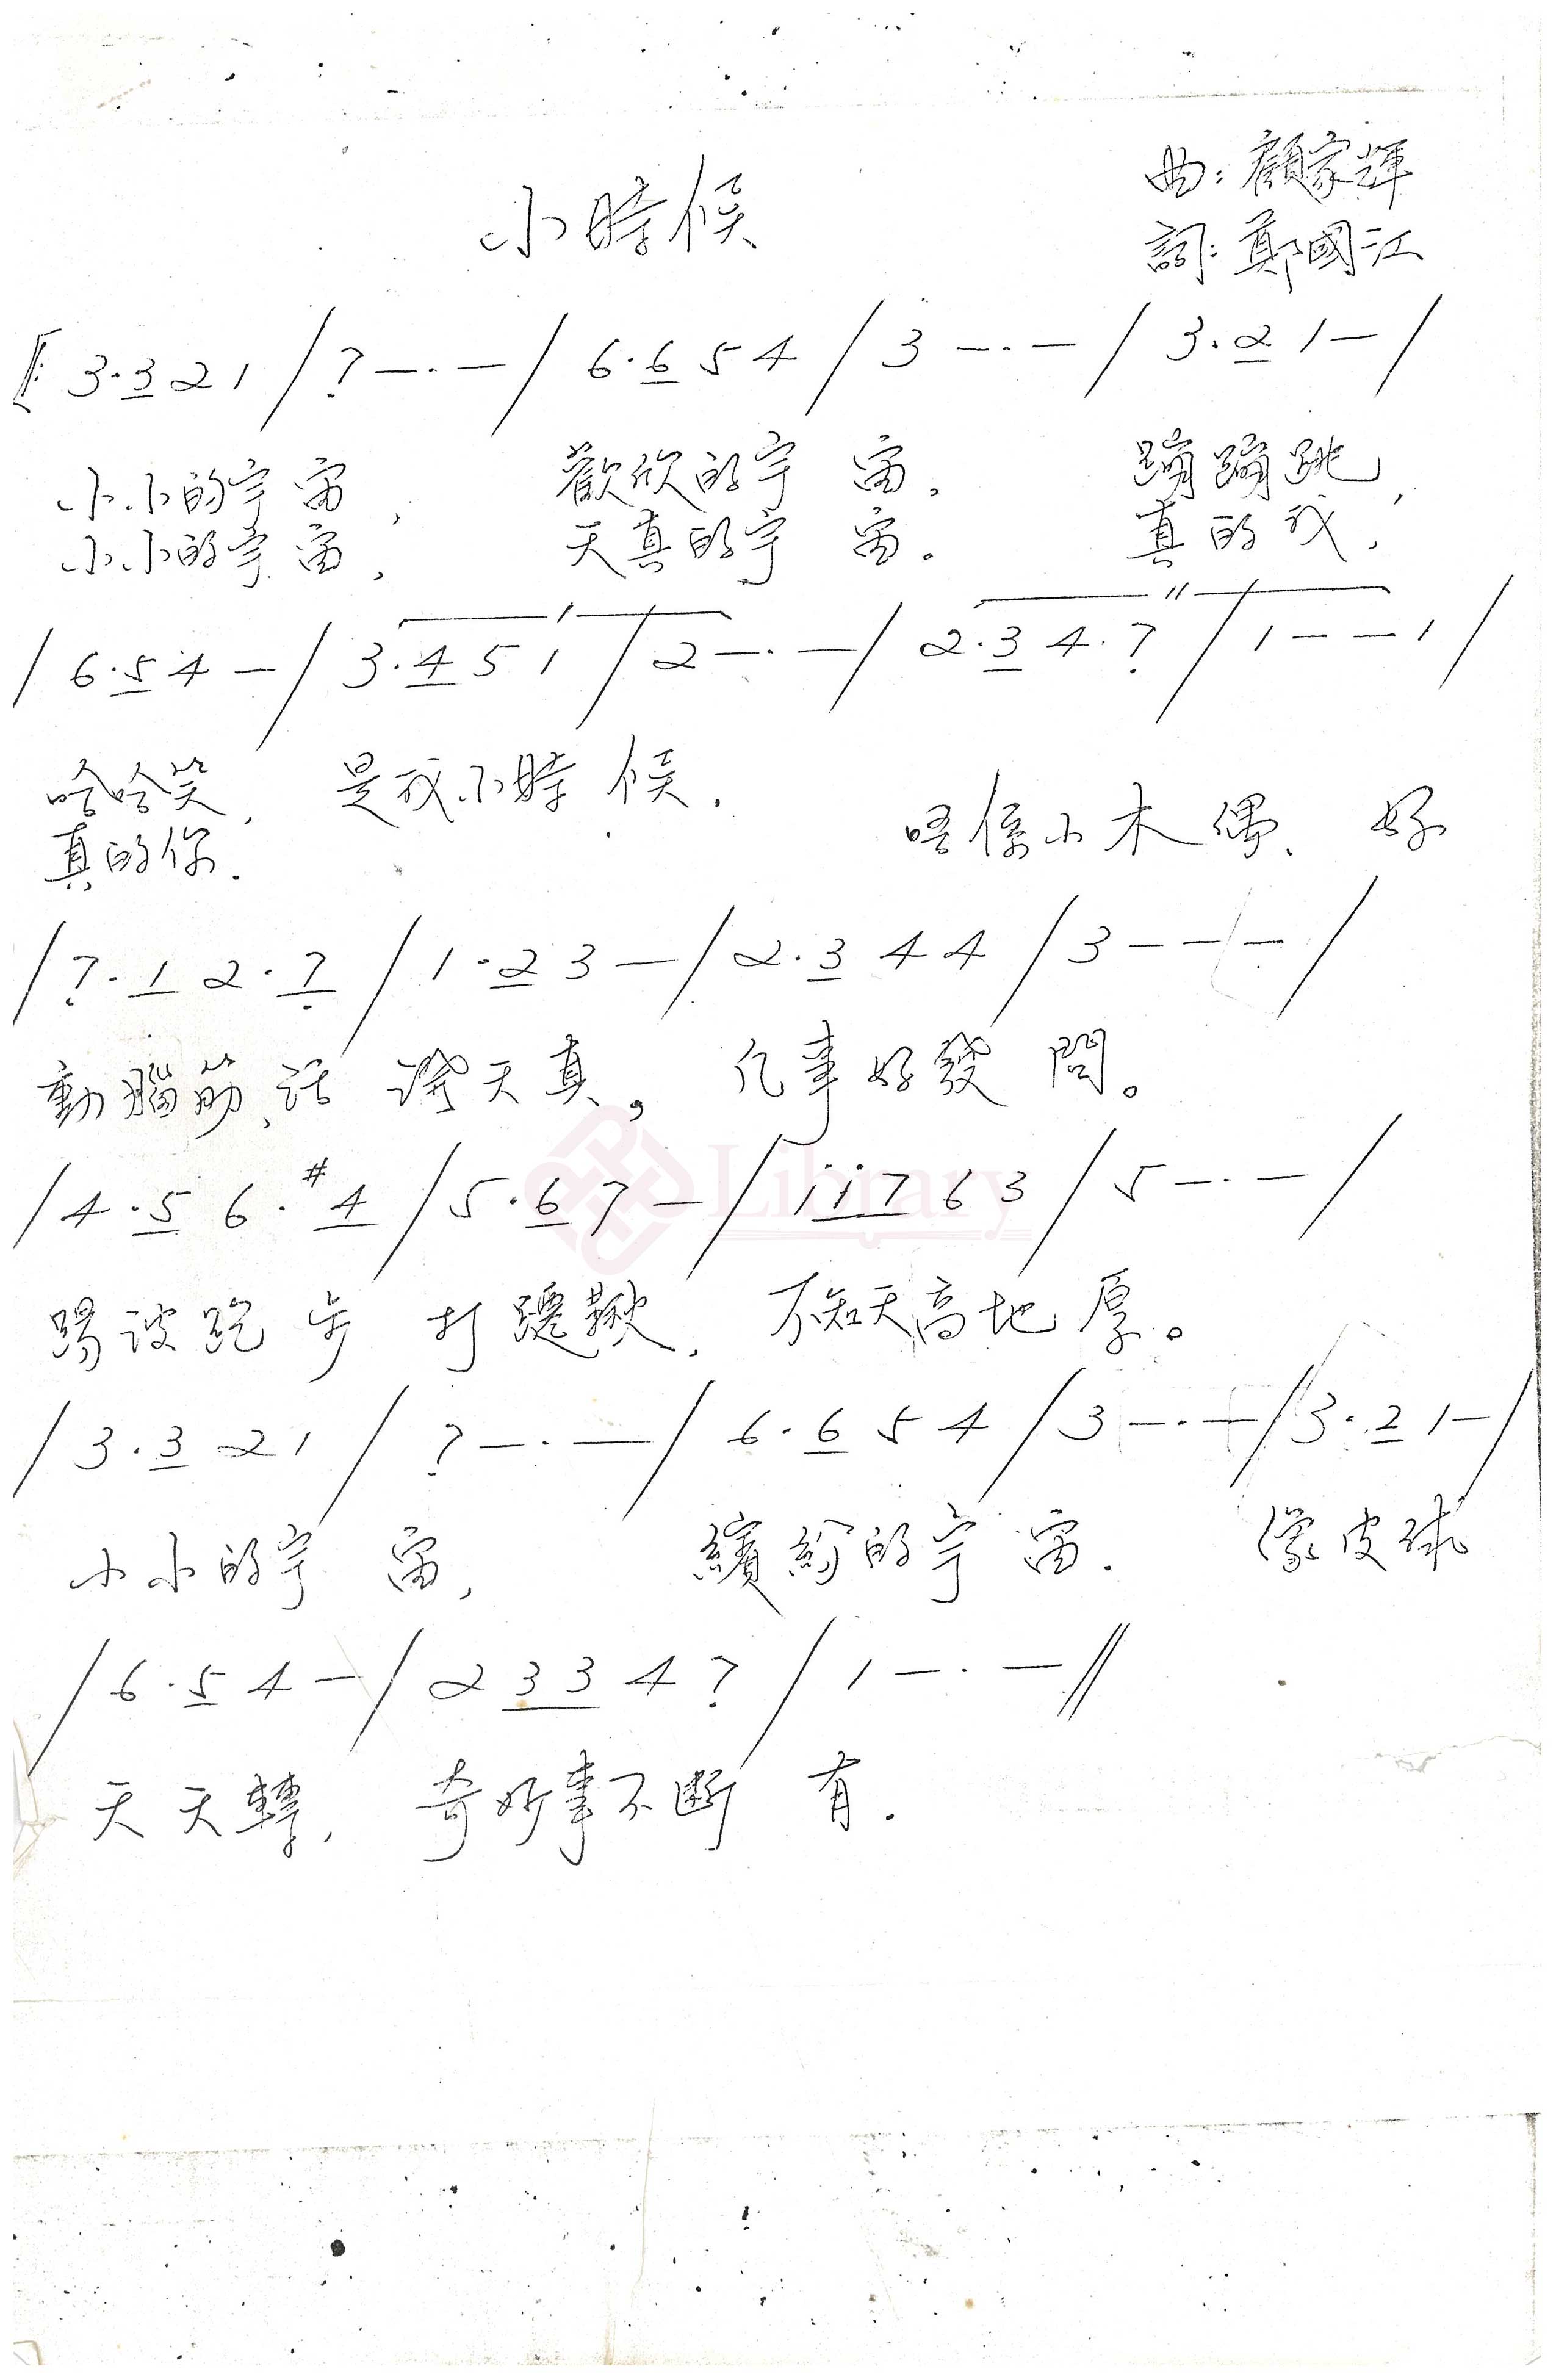 小時候
曲：顧家輝
詞：鄭國江
‖: 3·3 2 1 / 7̣ – · – / 6·6 5 4 / 3 – · – / 3·2 1 – /
小小的宇宙， 歡欣的宇宙。 蹦蹦跳，
小小的宇宙， 天真的宇宙。 真的我，
/ 6·5 4 – / 3·4 5 1 / 2 – · – / 2·3 4·7̣ / 1 – – 1 /
哈哈笑， 是我小時候．
真的你． 唔係小木偶、 好
/ 7̣·1 2·7̣ / 1·2 3 – / 2·3 4 4 / 3 – – – /
動腦筋、話 天真。 凡事好發問。
/ 4·5 6·#4 / 5·6 7 – / i i 7 6 3 / 5 – · – /
踢波跑步 打韆鞦． 不知天高地厚。
/ 3·3 2 1 / 7̣ – · – / 6·6 5 4 / 3 – · – / 3·2 1 – /
小小的宇宙， 繽紛的宇宙． 像皮球
/ 6·5 4 – / 2 3 3 4 7̣ / 1 – · – //
天天轉， 奇妙事不斷有．
Library